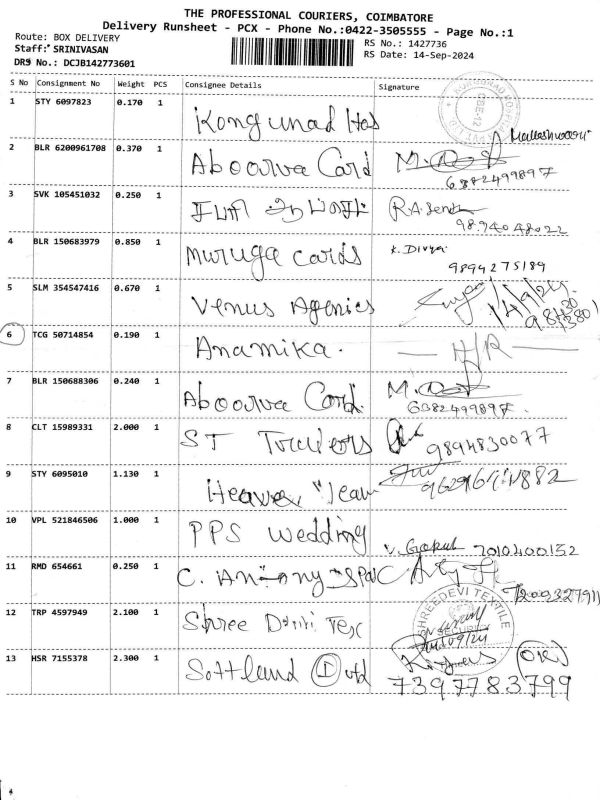 THE PROFESSIONAL COURIERS, COIMBATORE
Delivery Runsheet - PCX - Phone No.:0422-3505555 - Page No.:1
Route: BOX DELIVERY
RS No.: 1427736
Staff: SRINIVASAN
RS Date: 14-Sep-2024
DRS No.: DCJB142773601
S No Consignment No Weight PCS Consignee Details Signature
1 STY 6097823 0.170 1 Kongunad Hos
2 BLR 6200961708 0.370 1 Aboorva Card
6382499897
3 SVK 105451032 0.250 1
R.A. 9894048022
4 BLR 150683979 0.850 1 Muruga Cards K. Divya
9894275189
5 SLM 354547416 0.670 1 Venus Agencies 14/9/24
6 TCG 50714854 0.190 1 Anamika. N/R
7 BLR 150688306 0.240 1 Aboorva Card
6382499897.
8 CLT 15989331 2.000 1 ST Traders 9894830077
9 STY 6095010 1.130 1
10 VPL 521846506 1.000 1 PPS Wedding V. Gokul 7010400152
11 RMD 654661 0.250 1 C. Antony
12 TRP 4597949 2.100 1 Shree Devi Tex
SHREEDEVI TEXTILE
SECURITY
13 HSR 7155378 2.300 1 (OK)
7397783799